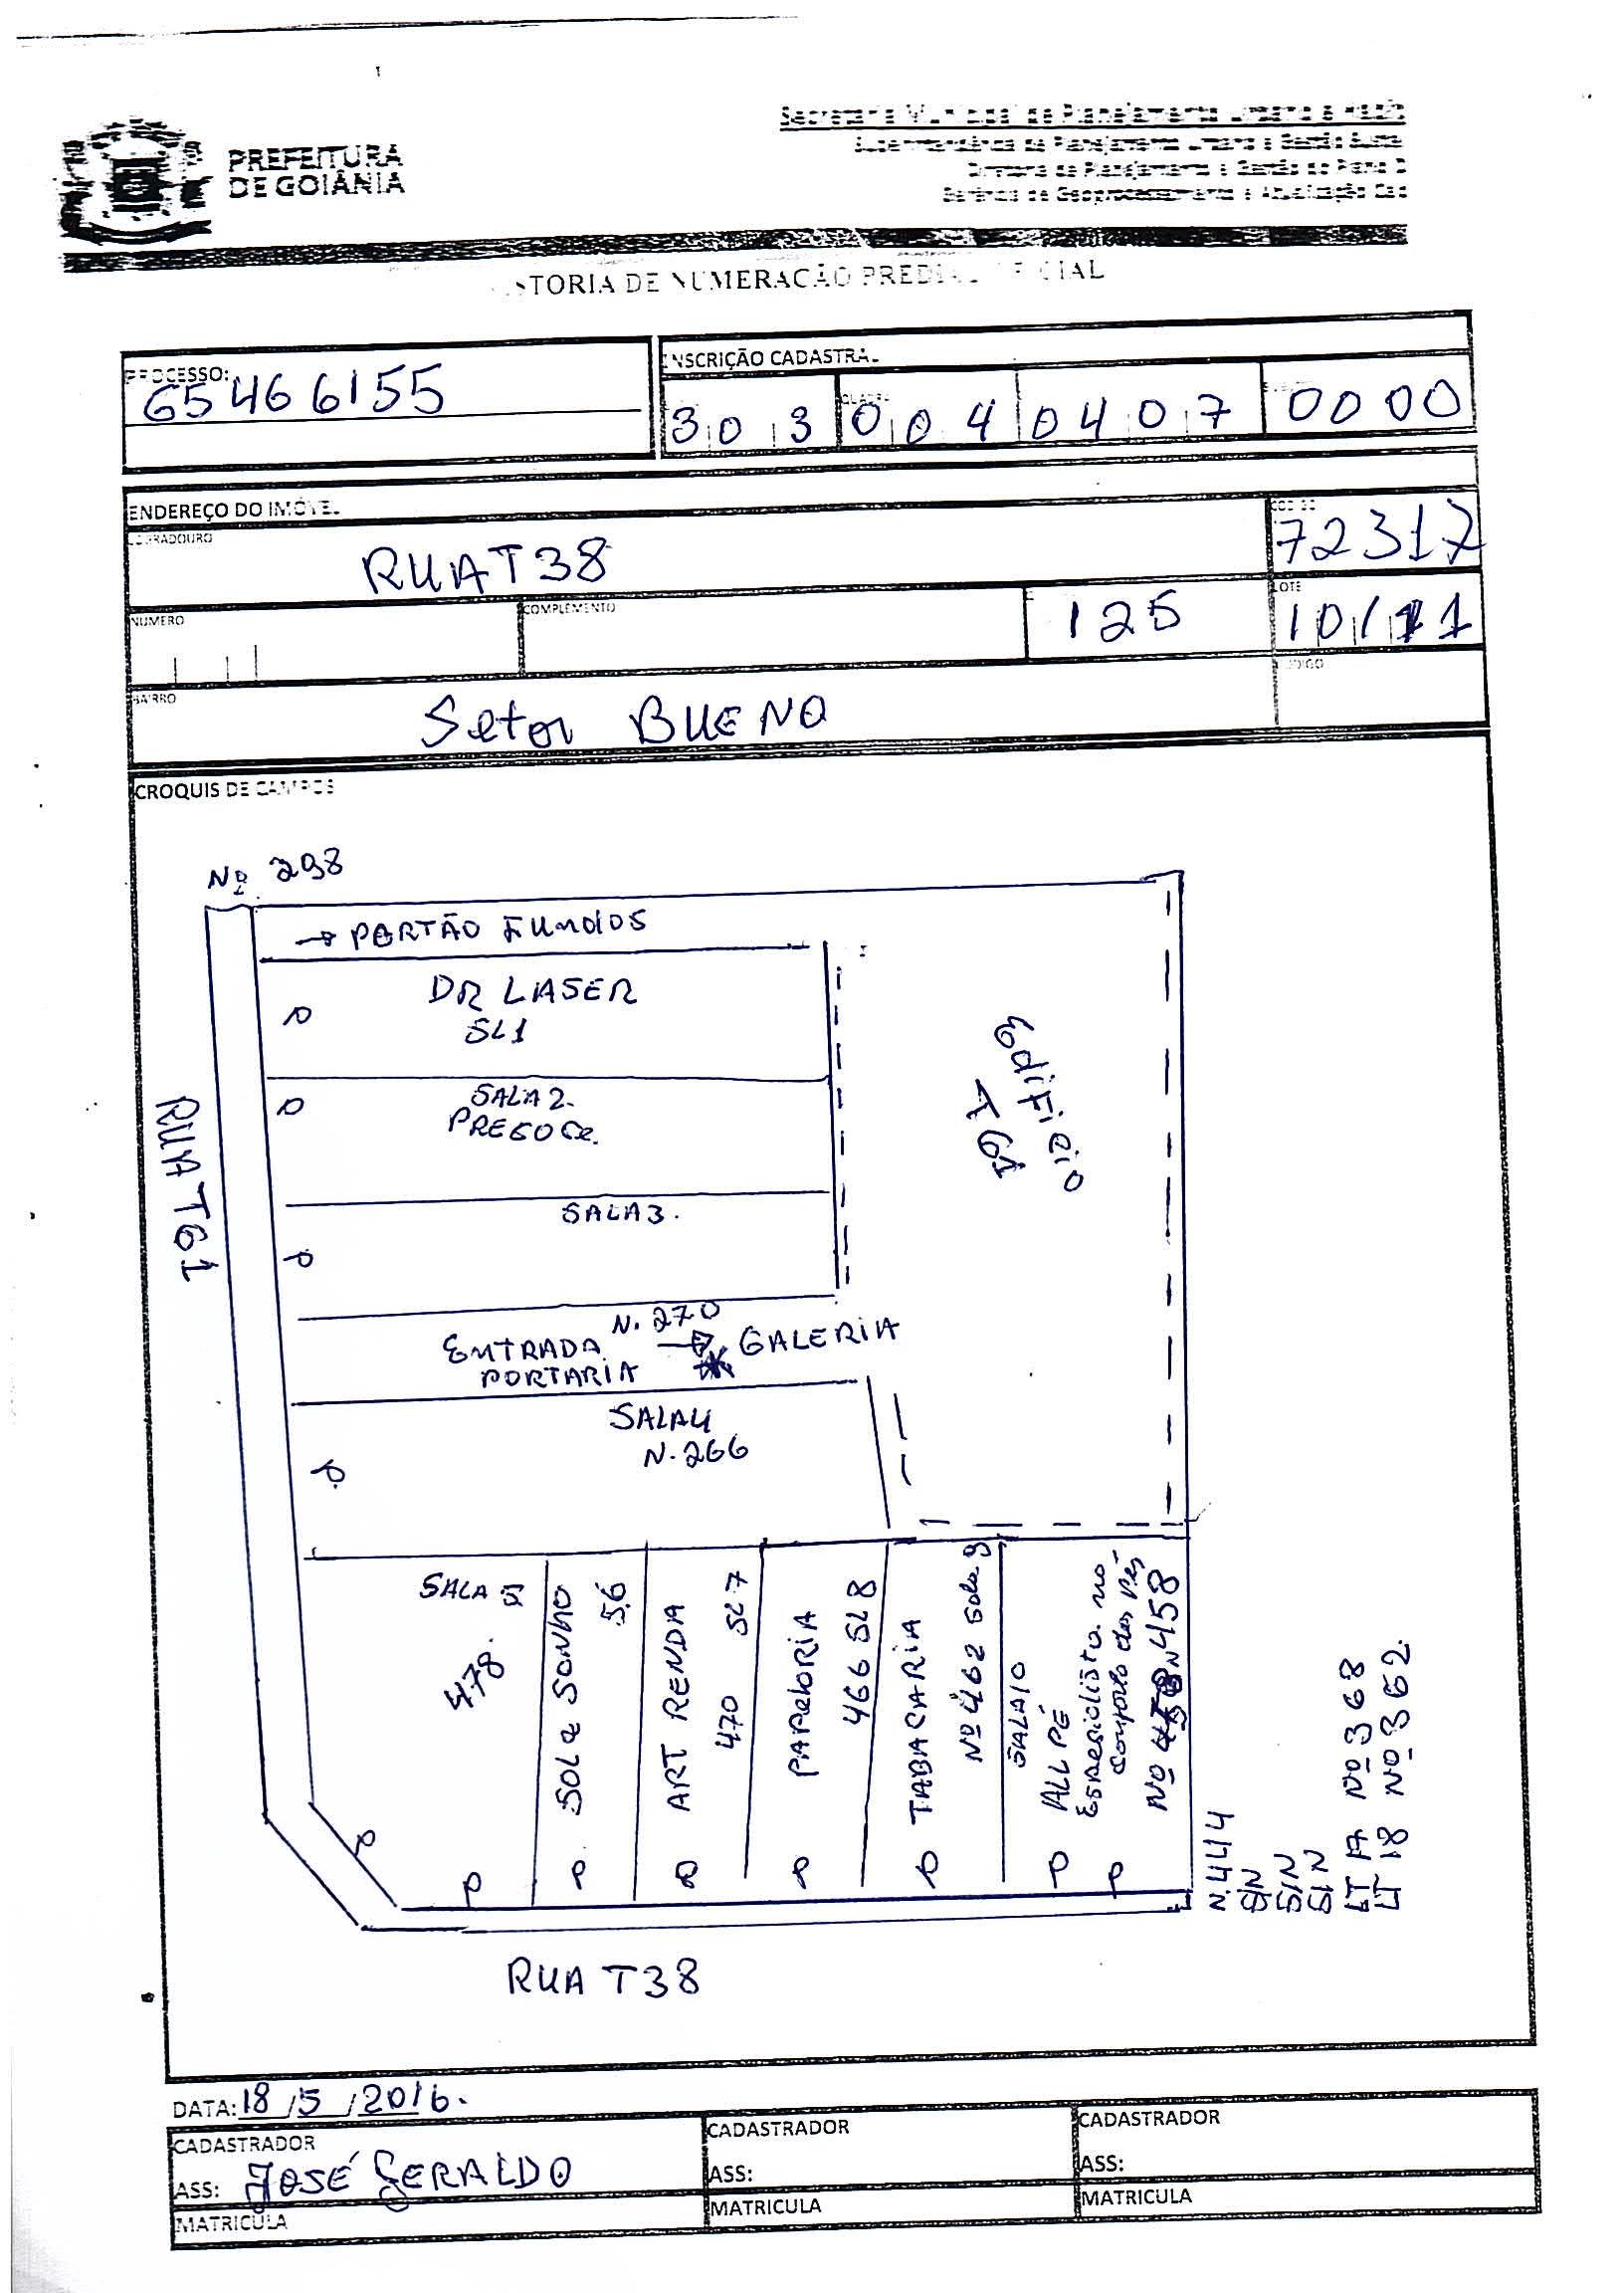 PREFEITURA
DE GOIÂNIA
Secretaria Municipal de Planejamento Urbano e
Superintendência de Planejamento Urbano e Gestão
Diretoria de Planejamento e Gestão do Plano D
Gerência de Geoprocessamento e Atualização Cad
STORIA DE NUMERAÇÃO PREDIAL CIAL
PROCESSO:
65466155
INSCRIÇÃO CADASTRAL
303 004 0407 0000
ENDEREÇO DO IMÓVEL
LOGRADOURO
RUA T38
CODIGO
72317
NUMERO
COMPLEMENTO
125
LOTE
10/11
BAIRRO
Setor BUENO
CODIGO
CROQUIS DE CAMPOS
Nº 298
→ PORTÃO FUNDOS
DR LASER
SL1
SALA 2.
SALA 3.
RUA T61
Edifício
N. 270
ENTRADA → GALERIA
PORTARIA
SALA 4
N. 266
SALA 5
478.
SOL e SONHO
S.6
ART RENDA
470 SL 7
PAPELORIA
466 SL 8
TABACARIA
Nº 462 Sala 9
SALA 10
ALL PÉ
Especialista no
Conforto dos Pés
Nº 458
N. 444
S/N
S/N
S/N
LT A Nº 368
LT 18 Nº 362.
RUA T38
DATA: 18/5/2016.
CADASTRADOR
ASS: JOSÉ GERALDO
MATRICULA
CADASTRADOR
ASS:
MATRICULA
CADASTRADOR
ASS:
MATRICULA